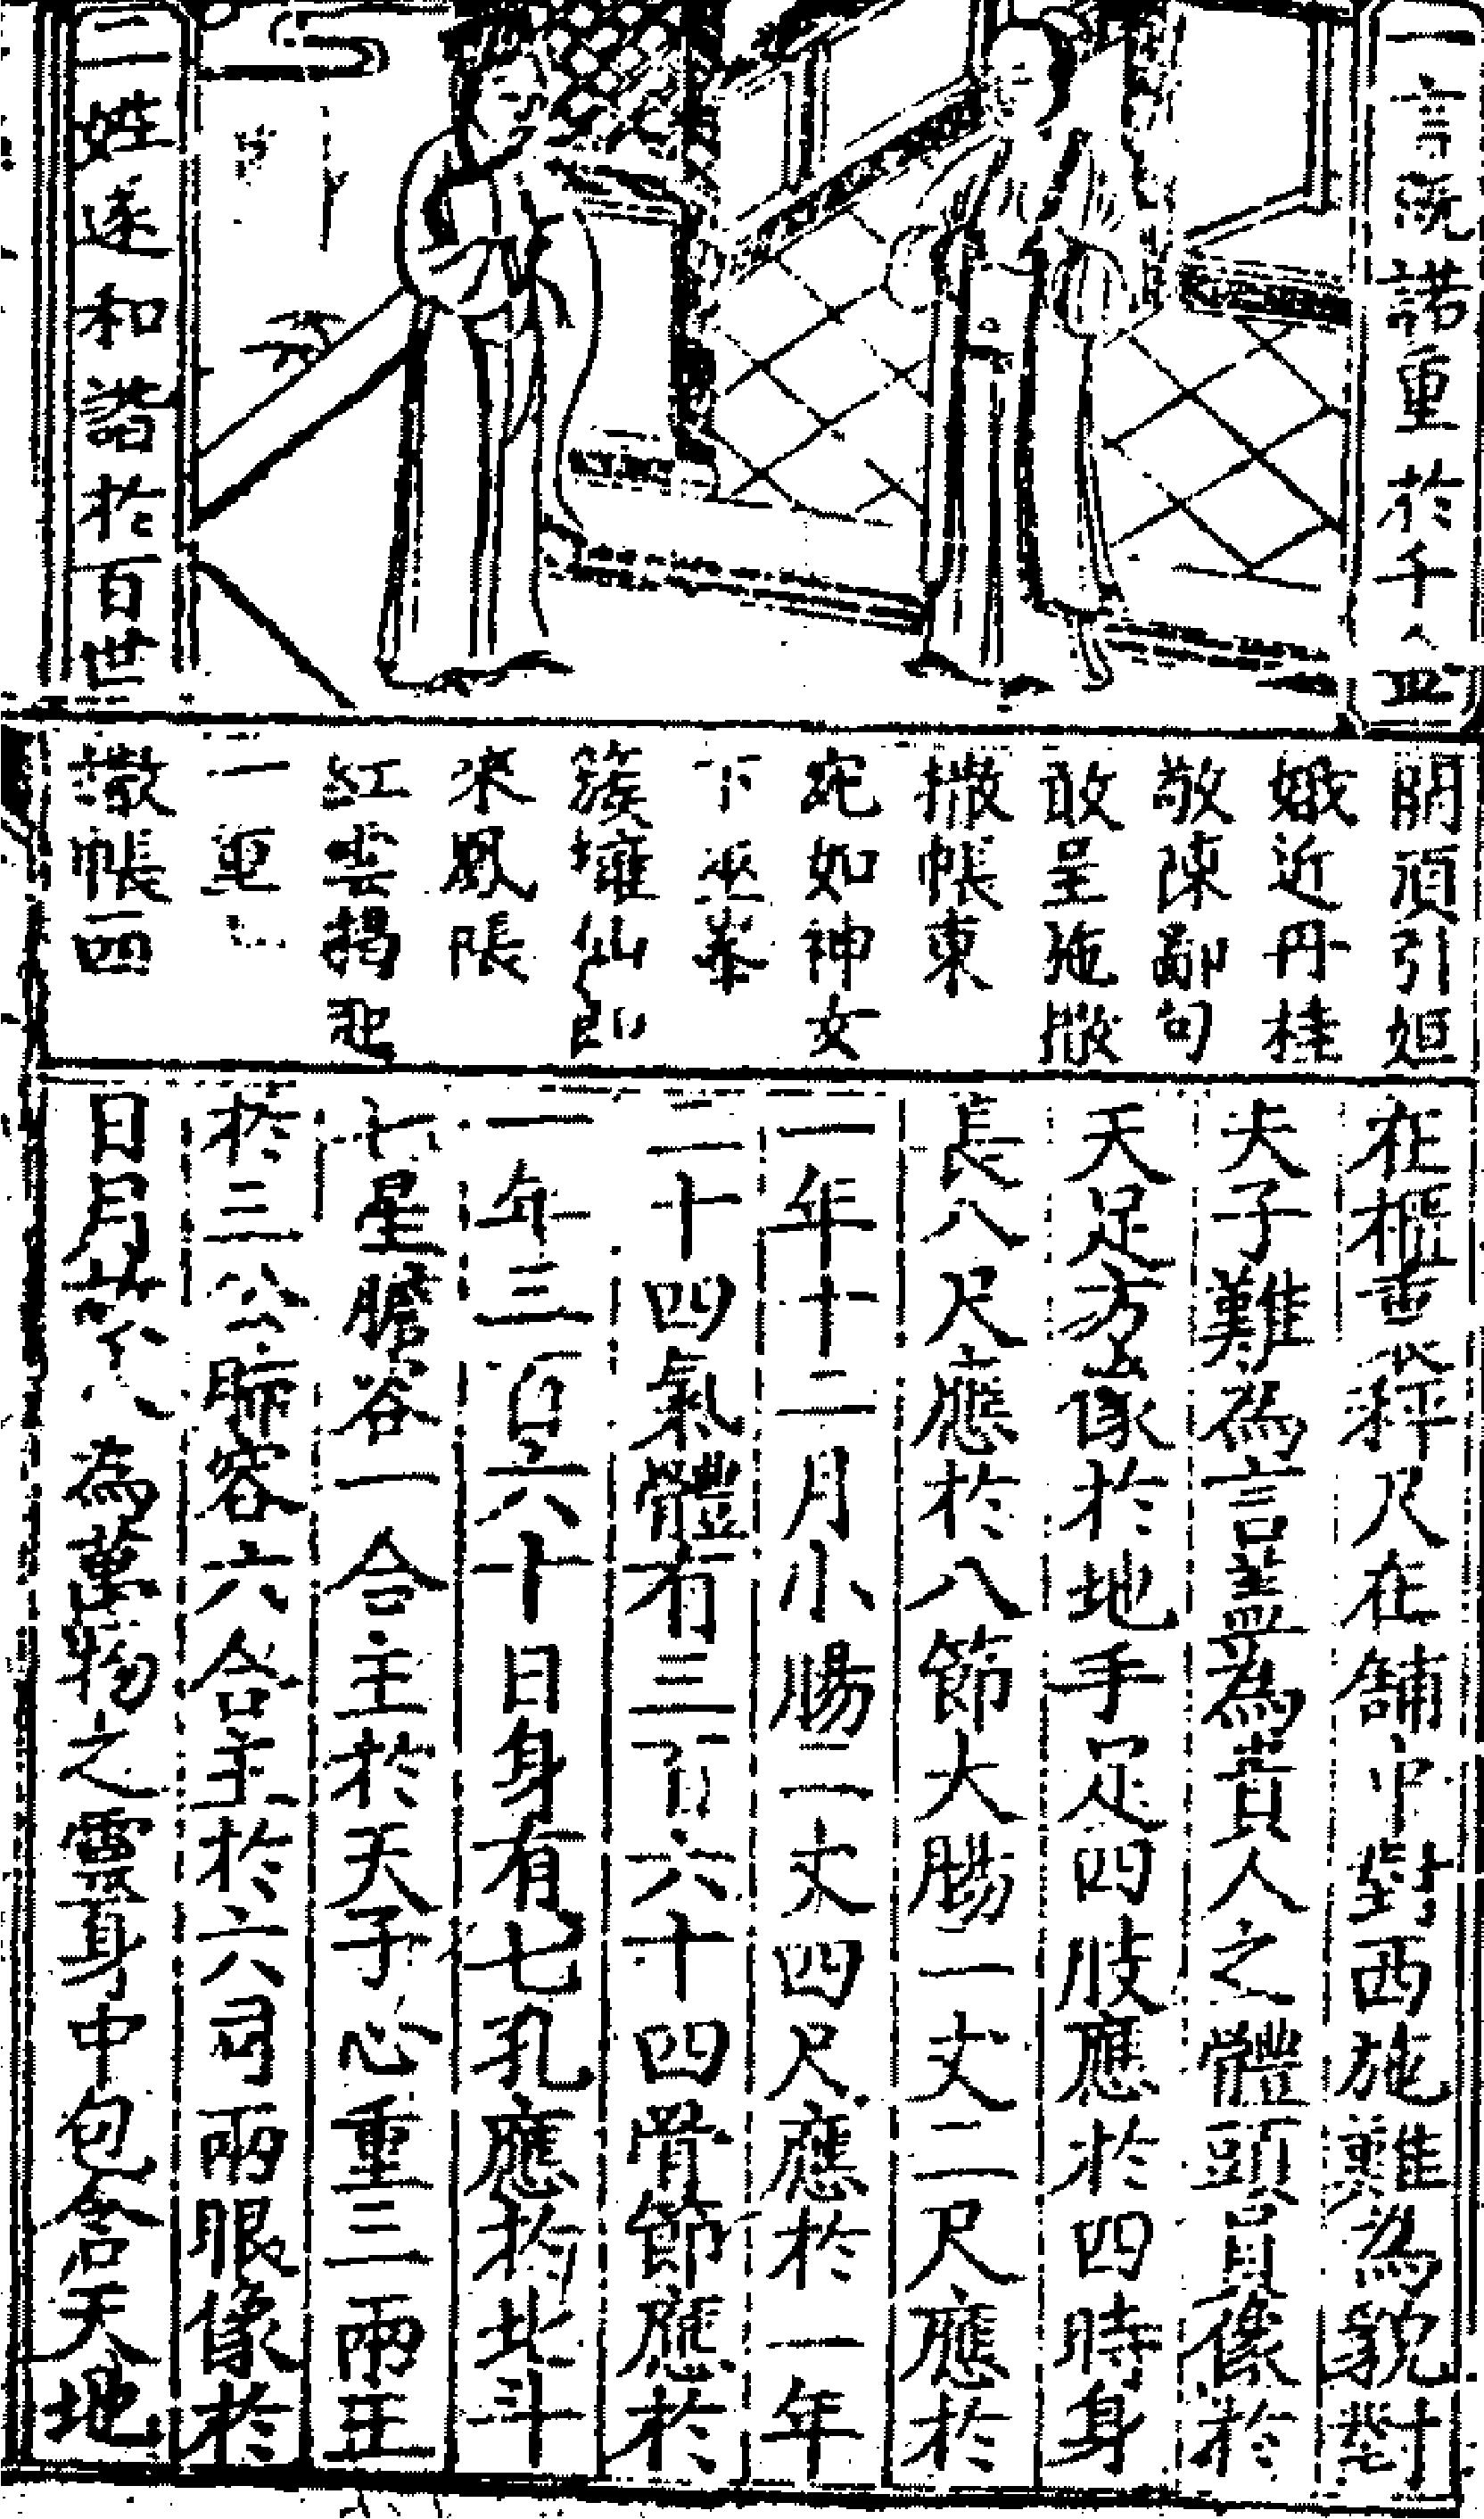 一言既諾重於千金
二姓遂和諧於百世
開頑引姮
娥近丹桂
敬陳鄙句
敢呈施撒
撒帳東
宛如神女
下巫峯
簇擁仙郎
來鳳帳
紅雲揭起
一重〻
撒帳西
在櫃車秤尺在舖中對西施難為貌對
夫子難為言盖為貴人之體頭員像於
天足方像於地手足四肢應於四時身
長八尺應於八節大腸一丈二尺應於
一年十二月小腸二丈四尺應於一年
二十四氣體有三百六十四骨節應於
一年三百六十日身有七孔應於北斗
七星膽容一合主於天子心重三兩主
於三公肺容六合主於六司兩眼像於
日月為萬物之靈身中包含天地